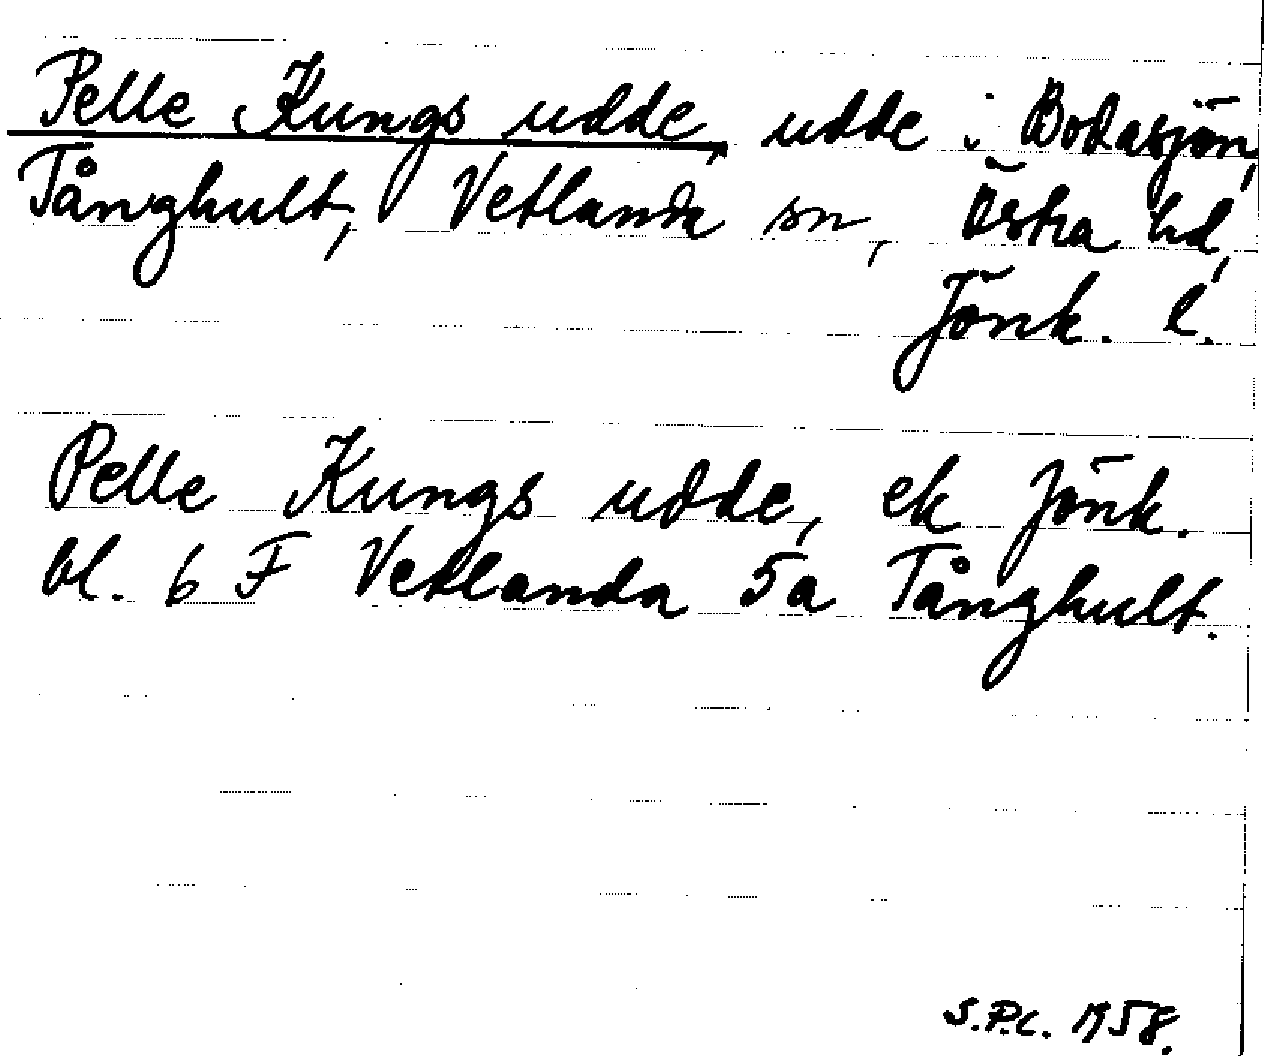 Pelle Kungs udde, udde i Bodasjön,
Tånghult, Vetlanda sn, Östra hd,
Jönk. l.
Pelle Kungs udde, ek Jönk.
bl. 6 F Vetlanda 5a Tånghult.
S.P.C. 1958.